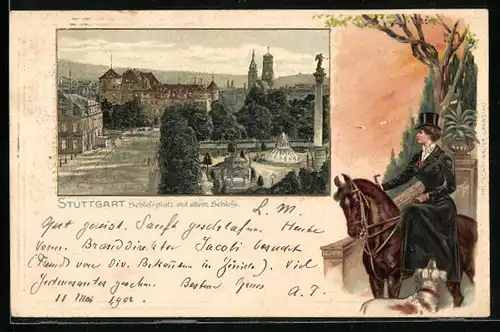 STUTTGART Schlossplatz mit altem Schloss.
L. M.
Gut gereist. Sanft geschlafen. Heute
Vorm. Branddirektor Jacobi besucht
(Freund von Div. Bekannten in Zürich). Viel
Interessantes gesehen. Besten Gruss
11 Mai 1902. A. T.